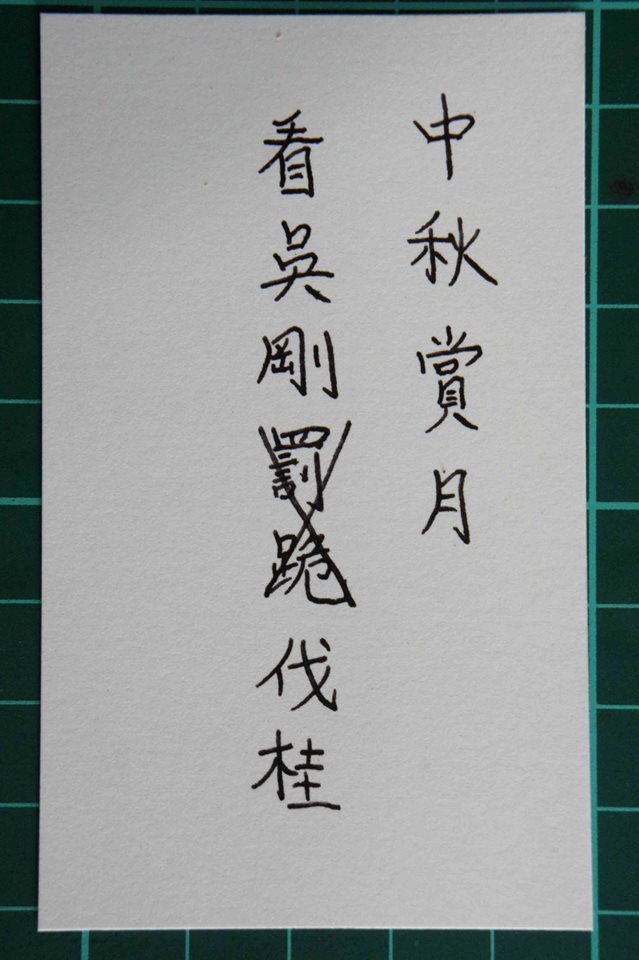 中秋賞月
看吳剛罰跪伐桂